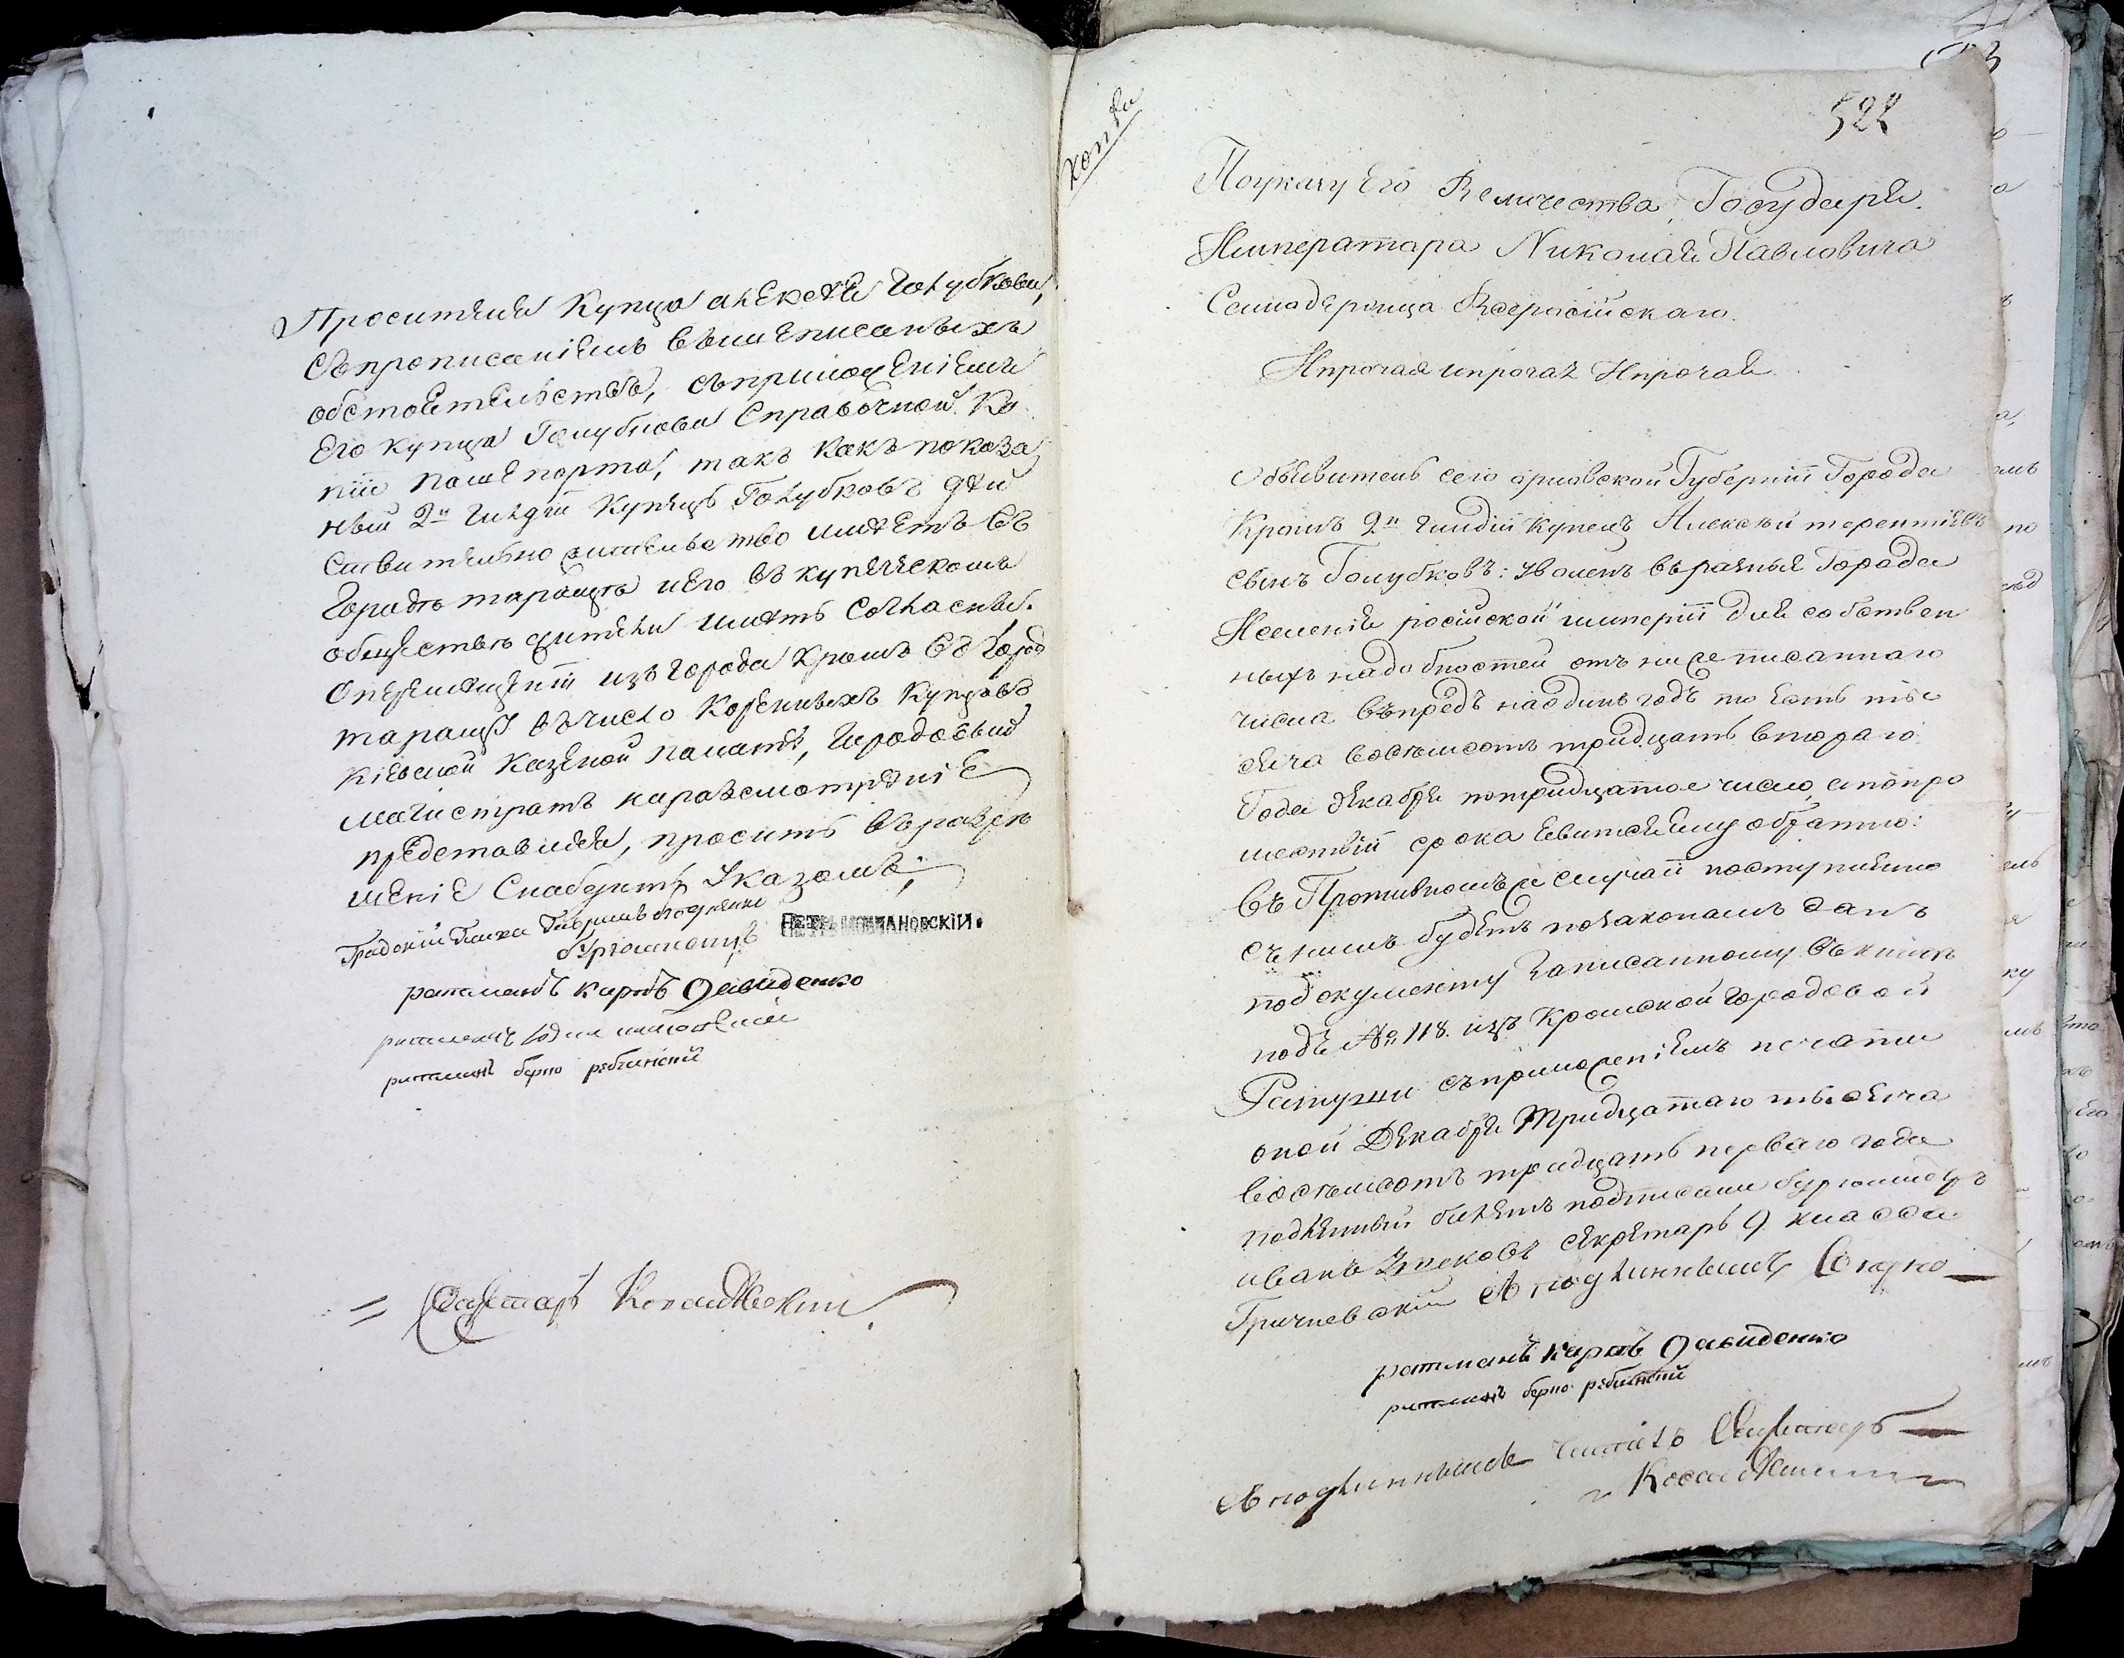 Прозитѣля Купца алексѣя Голубкова,
Съпрописаніемъ вышеписаныхъ
обстоятельствъ, съприложеніемъ
Его купца Голубкова Справочной Ко
піи пашепорта, такъ какъ показа
ный 2й гилдіи Купецъ Голубковъ дѣй
ствительно жительство имѣетъ въ
Городѣ таращѣ иего въ купеческомъ
обществѣ жители имѣть Согласны.
Оперемѣщеніи изъ города Кромъ въ Город
таращу въчисло Кореныхъ Купцовъ
Кіевской Казеной палатѣ, Городовый
магистратъ наразсмотреніе
представляя, просить въразре
шеніе Снабдить Указомъ;
Градскій Глава Гавриилъ
бургомистръ
ратманъ карпъ Давиденко
ратманъ
ратманъ берко рабинскій
Секретарь
копія
522
Поуказу Его Величества Государя
Императара Николая Павловича
Самодержца Всеросійскаго
Ипрочая ипрочая Ипрочая
Объявитель сего орловской Губерніи Города
Кромъ 2й гилдіи купецъ Алексѣй терентіевъ
сынъ Голубковъ: уволенъ въразныя Города
Иселенія російской имперіи для собствен
ныхъ надобностей отъ нижеписаннаго
числа въпредъ наодинъ годъ то есть тыс
яча восемьсотъ тридцать втораго
Года декабря потридцатое число, апопро
шествіи срока явитсяему обратно:
въ Противномъ случаи поступлено
съ нимъ будетъ позаконамъ данъ
подокументу записанному въкниге
подъ № 118. изъ Кромской городовой
Ратуши съприложеніемъ печати
оной Декабря Тридцатаго тысяча
восемьсотъ тридцать перваго года
подленный билетъ подписали бургомистръ
иванъ секретарь 9 класса
Гричневскій
ратманъ карпъ Давиденко
ратманъ берко рабинскій
Съ подлиннымъ читалъ Секретарь